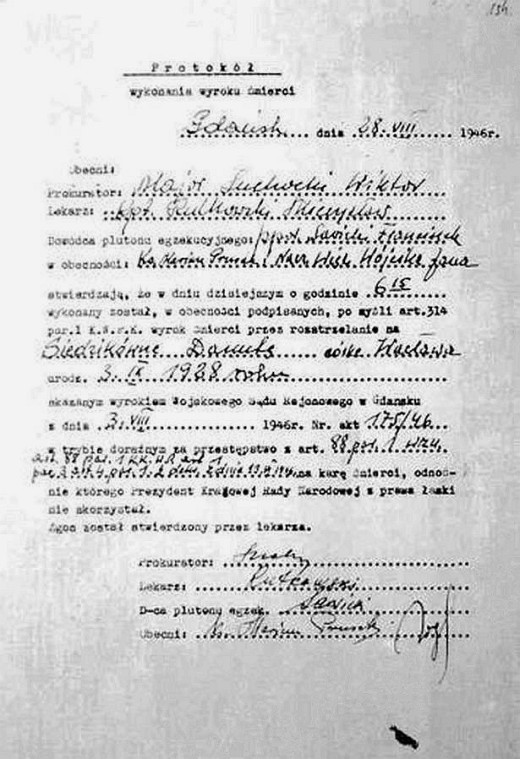 134
Protokół
wykonania wyroku śmierci
Gdańsk dnia 28 VIII 1946r.
Obecni:
Prokurator: Major Suchocki Wiktor
Lekarz: kpt. Rutkowski Mieczysław
Dowódca plutonu egzekucyjnego: ppor Sawicki Franciszek
w obecności: Ks. Marian Prusak i Nacz. Więz. Wójcika Jana
stwierdzają, że w dniu dzisiejszym o godzinie 6 15
wykonany został, w obecności podpisanych, po myśli art.314
par.1 K.W.P.K. wyrok śmierci przez rozstrzelanie na
Siedzikównę Danutę córkę Wacława
urodz. 3. IX 1928 roku
skazanym wyrokiem Wojskowego Sądu Rejonowego w Gdańsku
z dnia 3. VIII 1946r. Nr. akt 175/46
w trybie doraźnym za przestępstwo z art. 88 par. 1 w zw.
na karę śmierci, odnoś-
nie którego Prezydent Krajowej Rady Narodowej z prawa łaski
nie skorzystał.
Zgon został stwierdzony przez lekarza.
Prokurator:
Lekarz: Rutkowski
D-ca plutonu egzek. Sawicki
Obecni: Ks. Marian Prusak